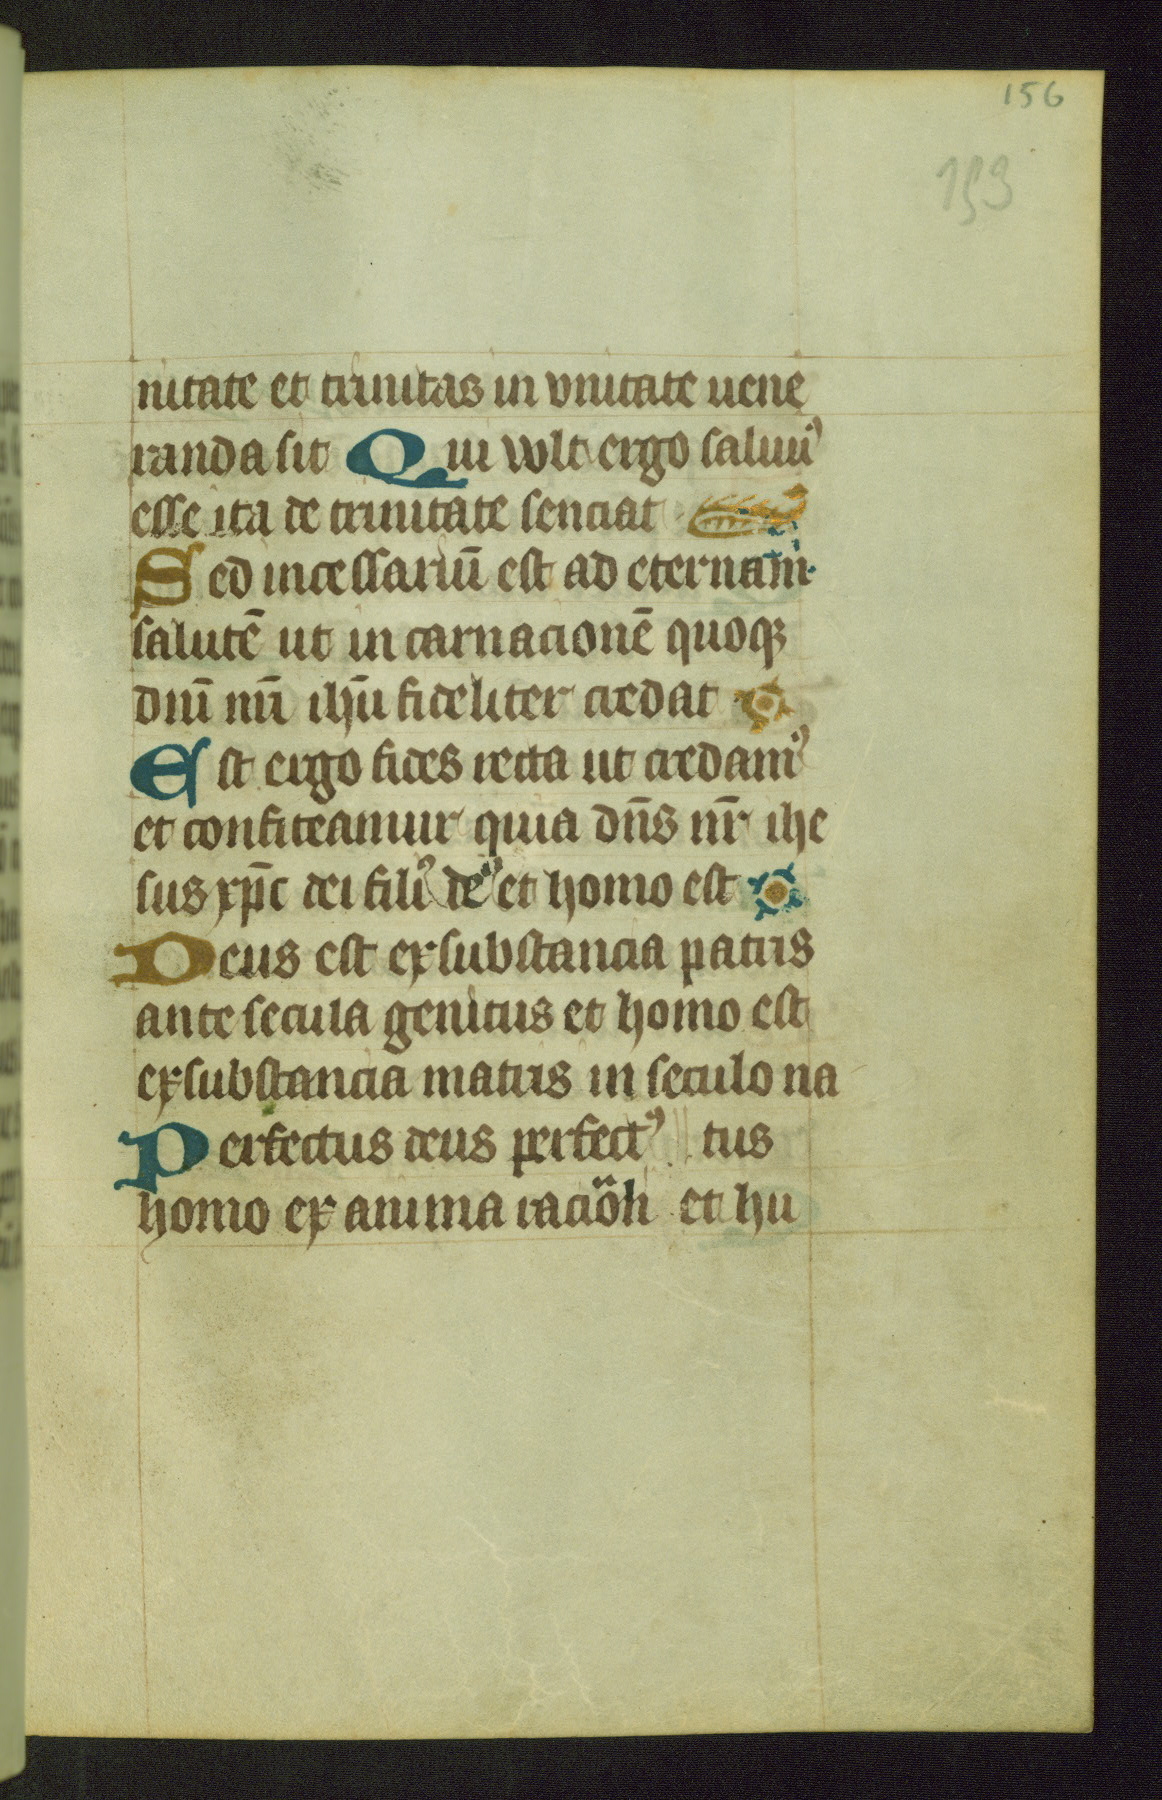 156
153
nitate et trinitas in vnitate uene
randa sit Qui wlt ergo saluu᾿
esse ita de trinitate senciat
Sed incessariū est ad eternam
salutē ut in carnacionē quoqꝫ
dnū nr̄i ihū fideliter credat
Est ergo fides recta ut credam᾿
et confiteamur quia dn̄s nr̄ ihe
sus xp̄c dei fili᾿ de᾿ et homo est
Deus est ex substancia patris
ante secula genitus et homo est
ex substancia matris in seculo na
Perfectus deus perfect᾿ tus
homo ex anima et hu